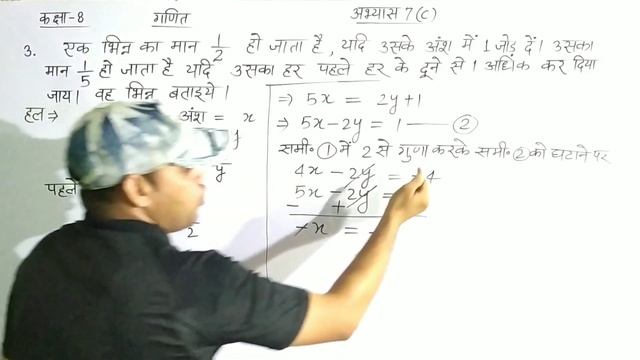 कक्षा-8 गणित अभ्यास 7(c)
3. एक भिन्न का मान 1/2 हो जाता है, यदि उसके अंश में 1 जोड़ दें। उसका
मान 1/5 हो जाता है यदि उसका हर पहले हर के दूने से 1 अधिक कर दिया
जाय। वह भिन्न बताइये।
हल ⇒ अंश = x
y
पहले
2
⇒ 5x = 2y+1
⇒ 5x-2y = 1 — ②
समी॰ ① में 2 से गुणा करके समी॰ ② को घटाने पर
4x - 2y = 4
5x - 2y =
- +
-x = -